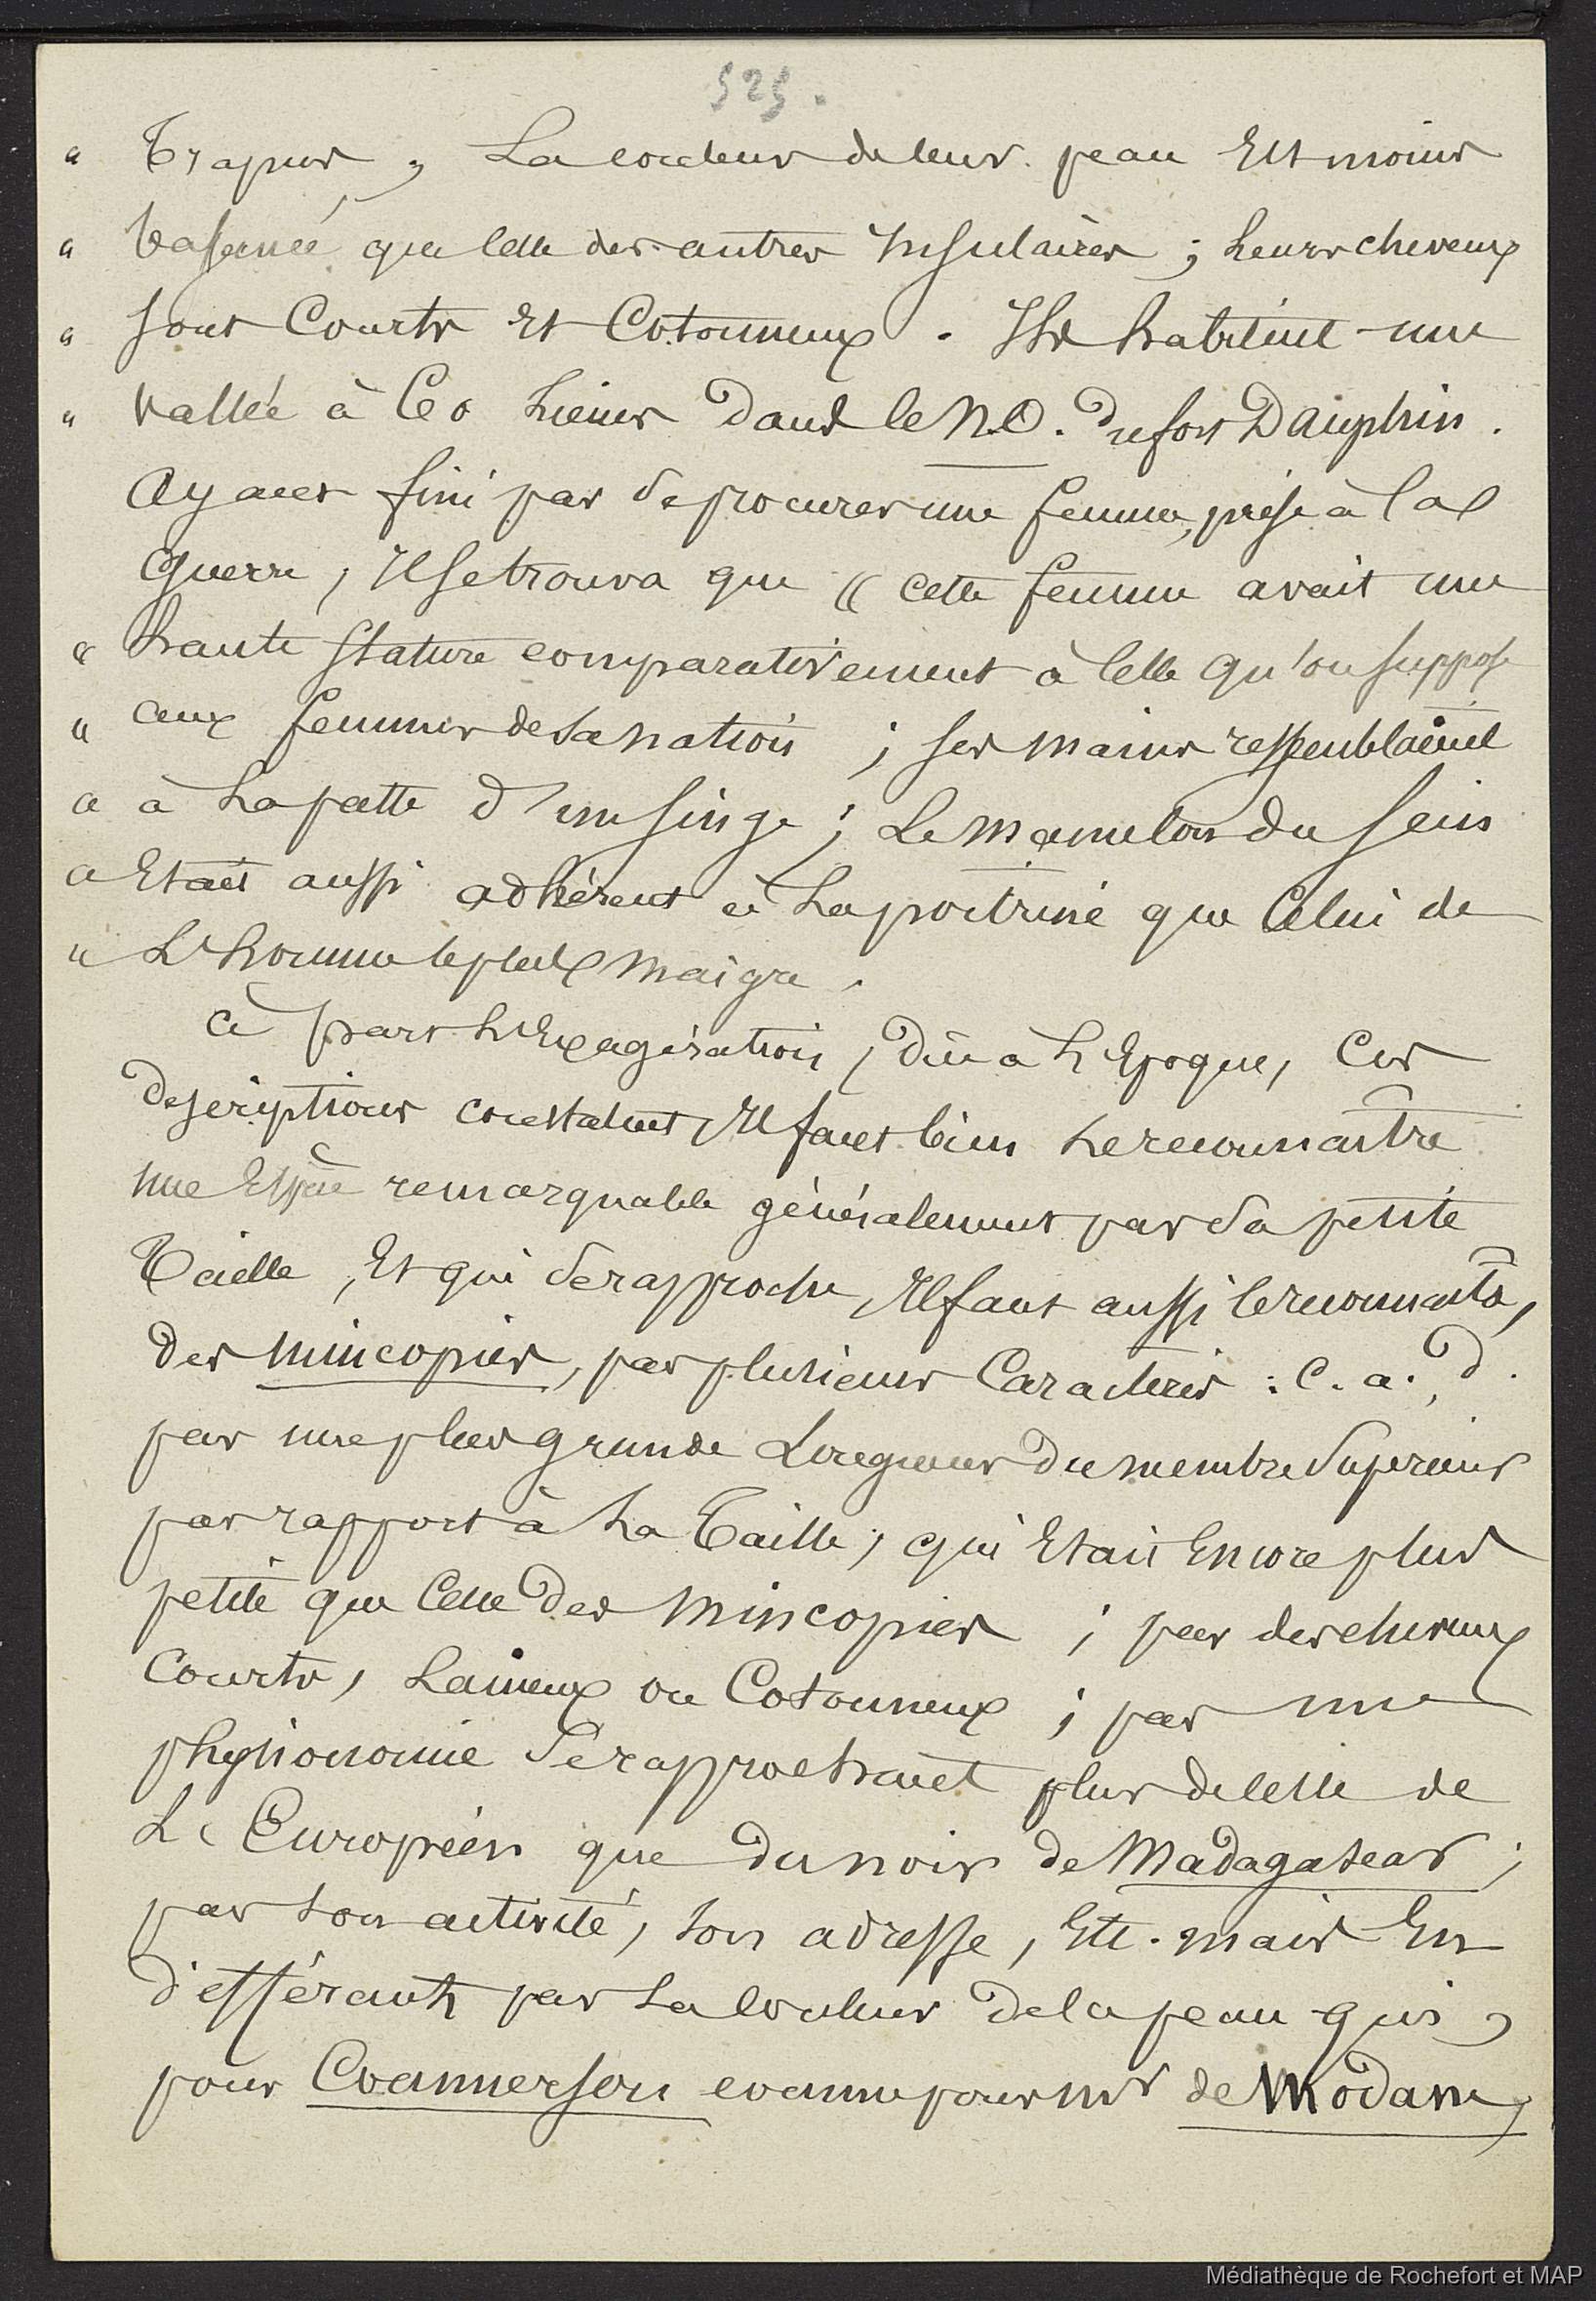 525.
" Trapus, La couleur de leur peau Est moins
" basanée que Celle des autres Insulaires ; Leurs cheveux
" sont Courts Et Cotonneux. Ils habitent une
" vallée à 60 Lieues Dans le N.O. du fort Dauphin.
Ayant fini par se procurer une femme, prise à la
Guerre, Il se trouva que « cette femme avait une
" haute stature comparativement à Celle qu'on suppose
" aux femmes de sa nation ; ses mains ressemblaient
" à La patte d'un singe ; Le mamelon du sein
" Etait aussi adhérent à La poitrine que Celui de
" L'homme le plus maigre.
à part L'Exagération, dûe à L'Epoque, Ces
Descriptions constatent, Il faut bien Le reconnaitre
une Espèce remarquable généralement par sa petite
Taille, Et qui se rapproche, Il faut aussi le reconnaitre,
des mincopies, par plusieurs Caractères : c. a. d.
par une plus grande Longueur du membre Superieur
par rapport à La Taille, qui Etait Encore plus
petite que Celle des Mincopies ; par des cheveux
Courts, Laineux ou Cotonneux ; par une
physionomie se rapprochant plus de Celle de
L'Européen que du noir de Madagascar ;
par son activité, son adresse, Etc. mais En
différant par La couleur de la peau qui,
pour Commerson comme pour Mr de Modave,
Médiathèque de Rochefort et MAP